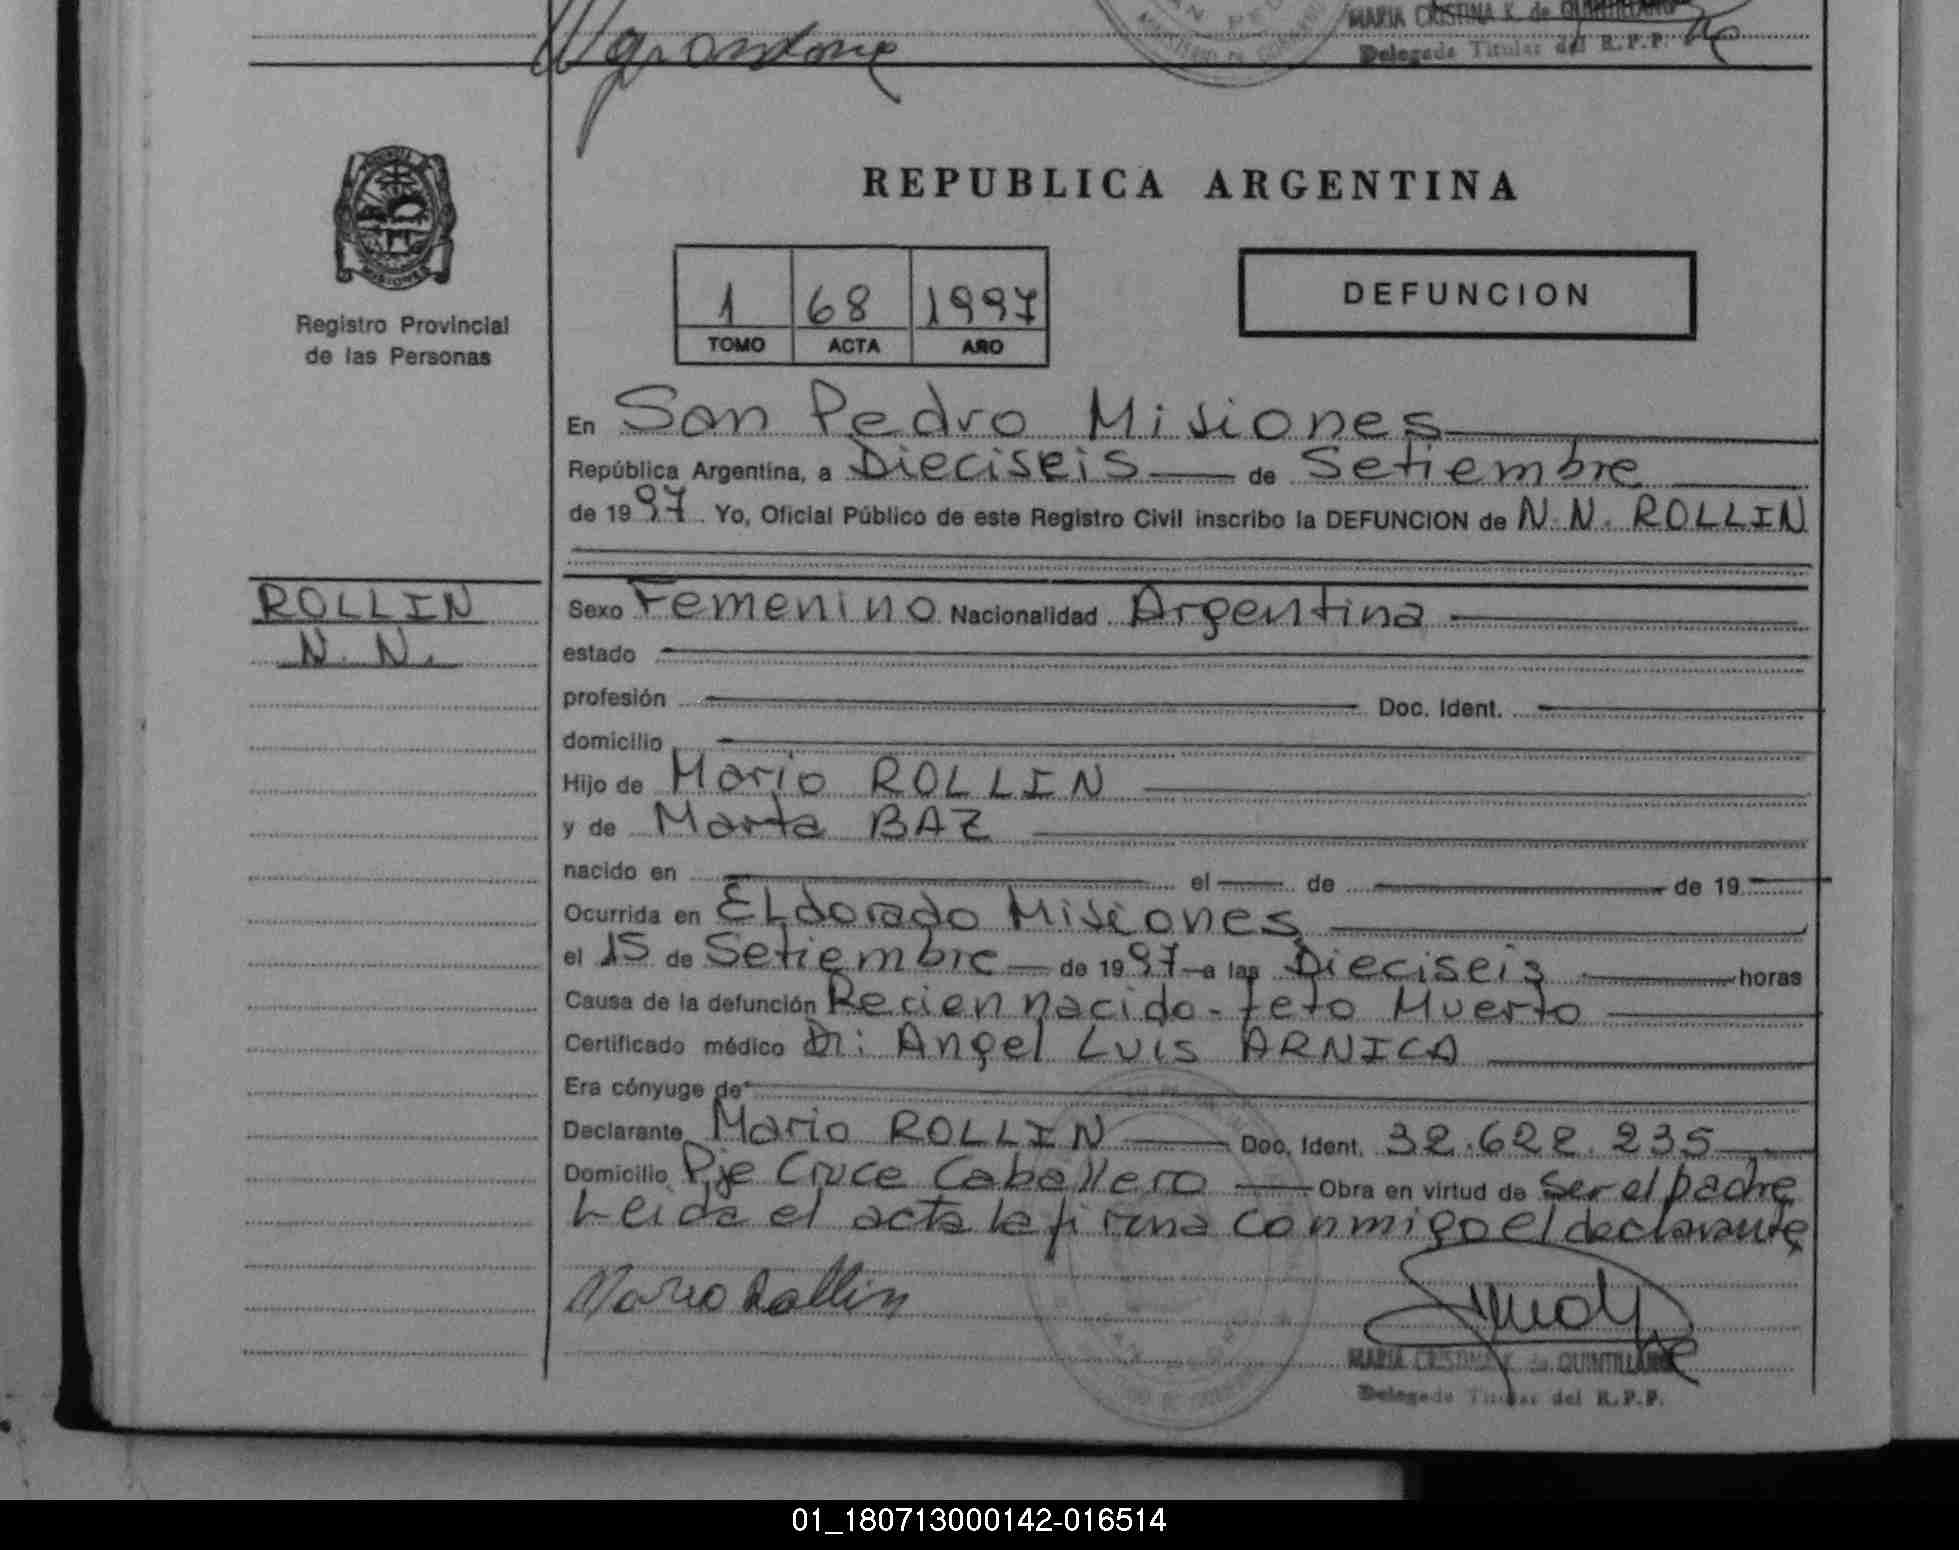 MARIA CRISTINA K. de QUINTILLAN
Delegada Titular del R.P.P.
REPUBLICA ARGENTINA
MISIONES
Registro Provincial
de las Personas
1 68 1997
TOMO ACTA AÑO
DEFUNCION
En San Pedro Misiones
República Argentina, a Dieciseis de Setiembre
de 1997 Yo, Oficial Público de este Registro Civil inscribo la DEFUNCION de N.N. ROLLIN
ROLLIN
N. N.
Sexo Femenino Nacionalidad Argentina
estado
profesión Doc. Ident.
domicilio
Hijo de Mario ROLLIN
y de Marta BAZ
nacido en el de de 19
Ocurrida en ELdorado Misiones
el 15 de Setiembre de 1997 a las Dieciseis horas
Causa de la defunción Recien nacido - feto Muerto
Certificado médico Dr: Angel Luis ARNICA
Era cónyuge de
Declarante Mario ROLLIN Doc. Ident. 32.622.235
Domicilio Pje Cruce Caballero Obra en virtud de Ser el padre
Leida el acta la firma conmigo el declarante
Mario Rollin
MARIA CRISTINA K. de QUINTILLAN
Delegada Titular del R.P.P.
01_180713000142-016514